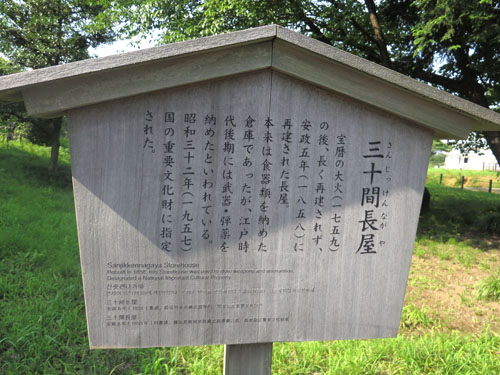 三十間長屋
さんじっけんながや
宝暦の大火（一七五九）
の後、長く再建されず、
安政五年（一八五八）に
再建された長屋。
本来は食器類を納めた
倉庫であったが、江戸時
代後期には武器・弾薬を
納めたといわれている。
昭和三十二年（一九五七）
国の重要文化財に指定
された。
Sanjikkennagaya Storehouse
Rebuilt in 1858, this Storehouse was used to store weapons and ammunition.
Designated a National Important Cultural Property.
三十间长屋
三十間長屋